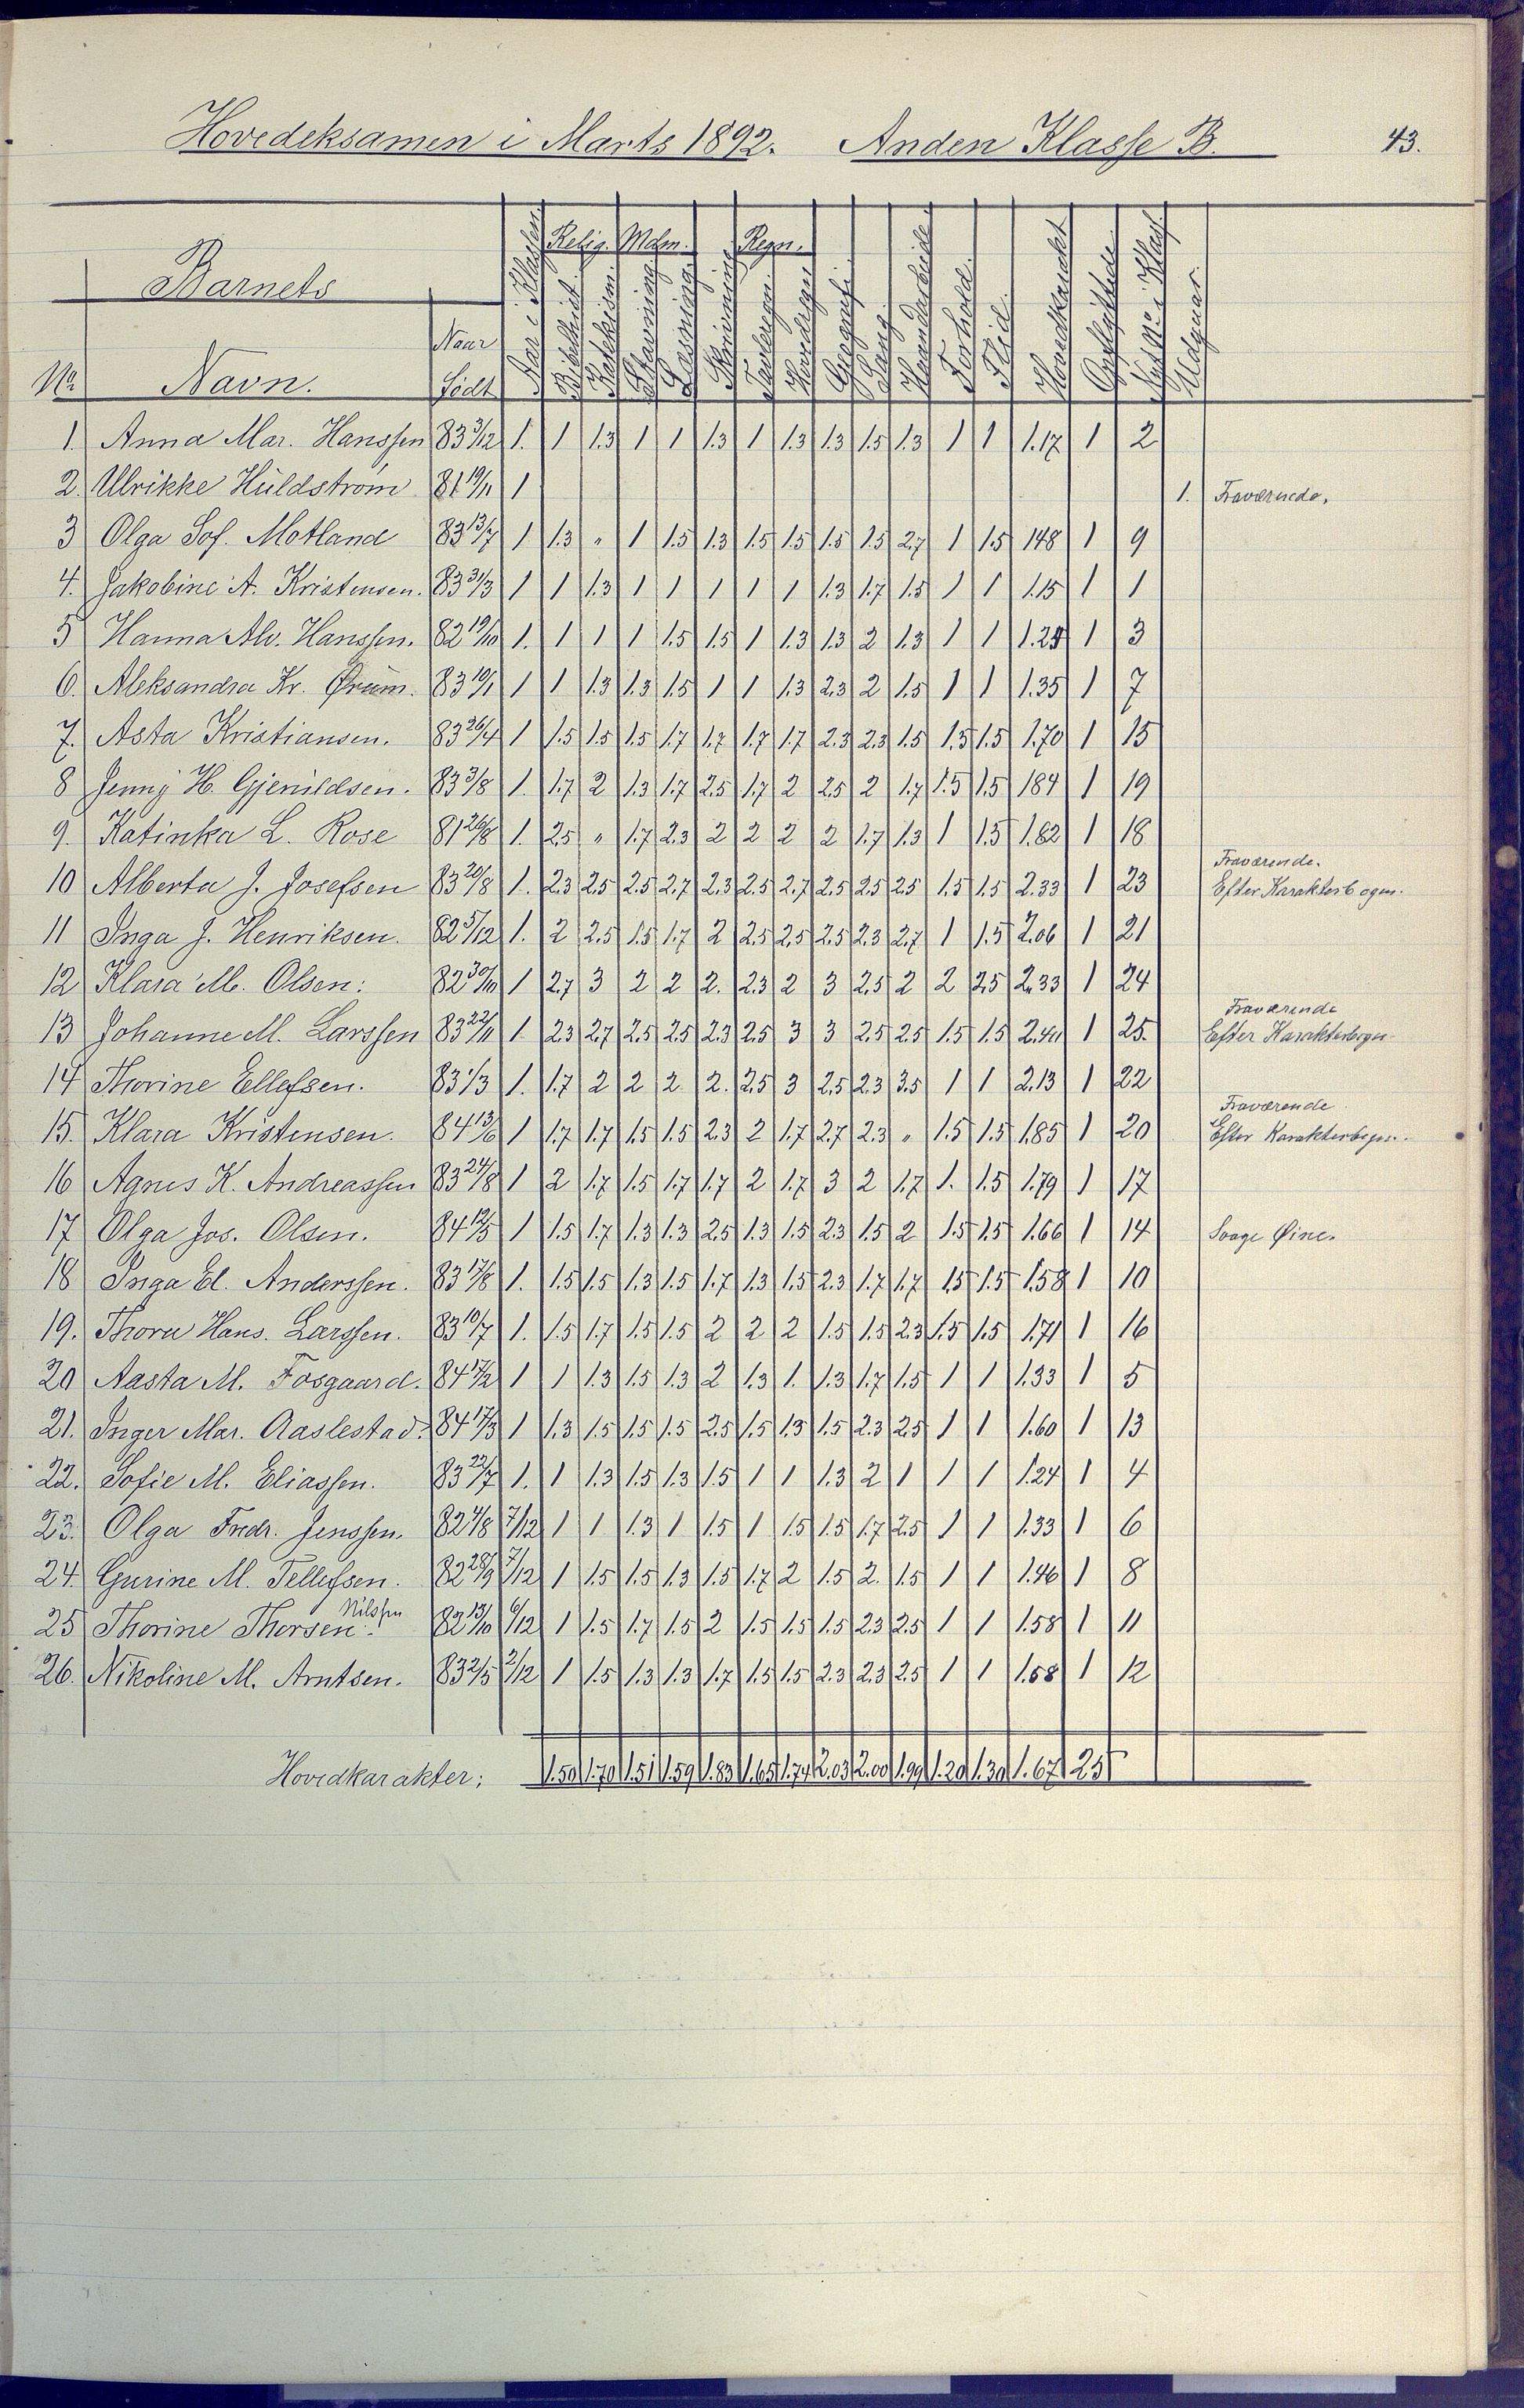 Hovedeksamen i Marts 1892. Anden Klasse B. 43.
Barnets
Relig. Mdm. Regn.
No Navn. Naar Født Aar i Klassen. Bibelhist. Kateksism. Stavning Læsning. Skrivning Tavleregn. Hovedregn. Geografi. Sang. Haandarbeide. Forhold. Flid. Hovedkarakt Opflyttede. Nyt No i Klas. Udgaar.
1. Anna Mar. Hanssen 83 3/12 1. 1 1.3 1 1 1.3 1 1.3 1.3 1.5 1.3 1 1 1.17 1 2
2. Ulrikke Hüldstrøm 81 19/11 1 1. Fraværende.
3 Olga Sof. Motland 83 13/7 1 1.3 " 1 1.5 1.3 1.5 1.5 1.5 1.5 2.7 1 1.5 1.48 1 9
4. Jakobine A. Kristensen. 83 31/3 1 1 1.3 1 1 1 1 1 1.3 1.7 1.5 1 1 1.15 1 1
5 Hanna Alv. Hanssen. 82 19/10 1. 1 1 1 1.5 1.5 1 1.3 1.3 2 1.3 1 1 1.24 1 3
6. Aleksandra Kr. Ørum. 83 10/1 1 1 1.3 1.3 1.5 1 1 1.3 2.3 2 1.5 1 1 1.35 1 7
7. Asta Kristiansen. 83 26/4 1 1.5 1.5 1.5 1.7 1.7 1.7 1.7 2.3 2.3 1.5 1.5 1.5 1.70 1 15
8 Jenny H. Gjenildsen. 83 3/8 1. 1.7 2 1.3 1.7 2.5 1.7 2 2.5 2 1.7 1.5 1.5 1.84 1 19
9. Katinka L. Rose 81 26/8 1. 2.5 " 1.7 2.3 2 2 2 2 1.7 1.3 1 1.5 1.82 1 18
Fraværende.
10 Alberta J. Josefsen 83 20/8 1. 2.3 2.5 2.5 2.7 2.3 2.5 2.7 2.5 2.5 2.5 1.5 1.5 2.33 1 23 Efter Karakterbogen.
11 Inga J. Henriksen. 82 5/12 1. 2 2.5 1.5 1.7 2 2.5 2.5 2.5 2.3 2.7 1 1.5 2.06 1 21
12 Klara M. Olsen: 82 30/10 1 2.7 3 2 2 2. 2.3 2 3 2.5 2 2 2.5 2.33 1 24
Fraværende
13 Johanne M. Larssen 83 22/11 1. 2.3 2.7 2.5 2.5 2.3 2.5 3 3 2.5 2.5 1.5 1.5 2.40 1 25. Efter Karakterbogen
14 Thorine Ellefsen. 83 1/3 1. 1.7 2 2 2 2. 2.5 3 2.5 2.3 3.5 1 1 2.13 1 22
Fraværende
15. Klara Kristensen. 84 13/6 1 1.7 1.7 1.5 1.5 2.3 2 1.7 2.7 2.3 " 1.5 1.5 1.85 1 20 Efter Karakterbogen.
16 Agnes K. Andreassen 83 24/8 1 2 1.7 1.5 1.7 1.7 2 1.7 3 2 1.7 1. 1.5 1.79 1 17
17 Olga Jos. Olsen. 84 12/5 1 1.5 1.7 1.3 1.3 2.5 1.3 1.5 2.3 1.5 2 1.5 1.5 1.66 1 14 Svage Øine.
18 Inga El. Anderssen. 83 17/8 1. 1.5 1.5 1.3 1.5 1.7 1.3 1.5 2.3 1.7 1.7 1.5 1.5 1.58 1 10
19. Thora Hans. Larssen. 83 10/7 1. 1.5 1.7 1.5 1.5 2 2 2 1.5 1.5 2.3 1.5 1.5 1.71 1 16
20 Aasta M. Fosgaard. 84 17/2 1 1 1.3 1.5 1.3 2 1.3 1. 1.3 1.7 1.5 1 1 1.33 1 5
21. Inger Mar. Aaslestad. 84 17/3 1 1.3 1.5 1.5 1.5 2.5 1.5 1.3 1.5 2.3 2.5 1 1 1.60 1 13
22. Sofie M. Eliassen. 83 22/7 1. 1 1.3 1.5 1.3 1.5 1 1 1.3 2 1 1 1 1.24 1 4
23. Olga Fredr. Jenssen. 82 4/8 7/12 1 1 1.3 1 1.5 1 1.5 1.5 1.7 2.5 1 1 1.33 1 6
24. Gurine M. Tellefsen. 82 28/9 7/12 1 1.5 1.5 1.3 1.5 1.7 2 1.5 2. 1.5 1 1 1.46 1 8
Nilssen
25 Thorine Thorsen. 82 13/10 6/12 1 1.5 1.7 1.5 2 1.5 1.5 1.5 2.3 2.5 1 1 1.58 1 11
26. Nikoline M. Arntsen. 83 2/5 2/12 1 1.5 1.3 1.3 1.7 1.5 1.5 2.3 2.3 2.5 1 1 1.58 1 12
Hovedkarakter; 1.50 1.70 1.51 1.59 1.83 1.65 1.74 2.03 2.00 1.99 1.20 1.30 1.67 25